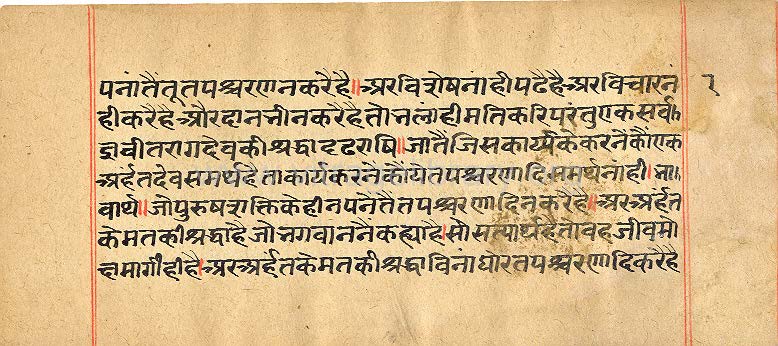 पनांतैंतूतपश्चरणनकरैहै॥अरविशेषनांहीपढैहैअरविचारनं १
हीकरैहैऔरदाननीनकरैहैतोनलांहीमतिकरिपरंतुएकसर्वा
ज्ञवीतरागदेवकीश्रद्धादृढराषि॥जातैंजिसकार्य्यकेकरनैकौंएक
अर्हंतदेवसमर्थहैताकार्यकरनैकौंयेतपश्चरणादिसमर्थनांही॥ना
वार्थ॥जोपुरुषशक्तिकेहीनपनेतैंतपश्चरणादिनकरैहै॥अरअर्हंत
केमतकीश्रद्धाहैजोनगवाननैंकह्याहै।सोसत्यार्थहैतोवहजीवमो
क्षमार्गीहीहै।अरअर्हंतकेमतकीश्रद्धाविनांघोरतपश्चरणादिकरैहै